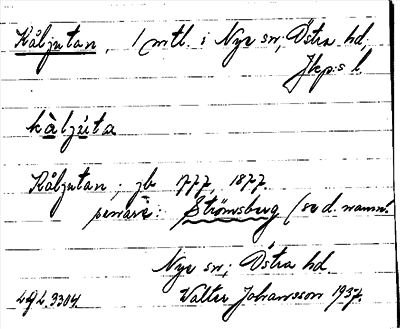 Kåljutan, 1 mtl. i Nye sn, Östra hd,
Jkp:s l.
kàljúta
Kåljutan; jb 777, 1877.
senare: Strömsberg (se d. namn.
Nye sn; Östra hd
LgL 3304 Valter Johansson 1937